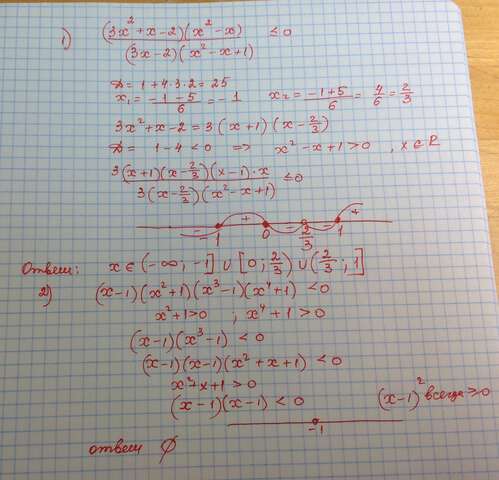 1) (3x²+x-2)(x²-x) / (3x-2)(x²-x+1) ≤ 0
D = 1+4·3·2 = 25
x₁ = (-1-5)/6 = -1 x₂ = (-1+5)/6 = 4/6 = 2/3
3x²+x-2 = 3(x+1)(x-2/3)
D = 1-4 < 0 => x²-x+1>0 , x∈R
3(x+1)(x-2/3)(x-1)·x / 3(x-2/3)(x²-x+1) ≤ 0
- + - - +
-1 0 2/3 1
Ответ: x ∈ (-∞; -1] ∪ [0; 2/3) ∪ (2/3; 1]
2) (x-1)(x²+1)(x³-1)(x⁴+1) < 0
x²+1>0 ; x⁴+1>0
(x-1)(x³-1) < 0
(x-1)(x-1)(x²+x+1) < 0
x²+x+1>0
(x-1)(x-1) < 0 (x-1)² всегда ≥0
-1
ответ ∅